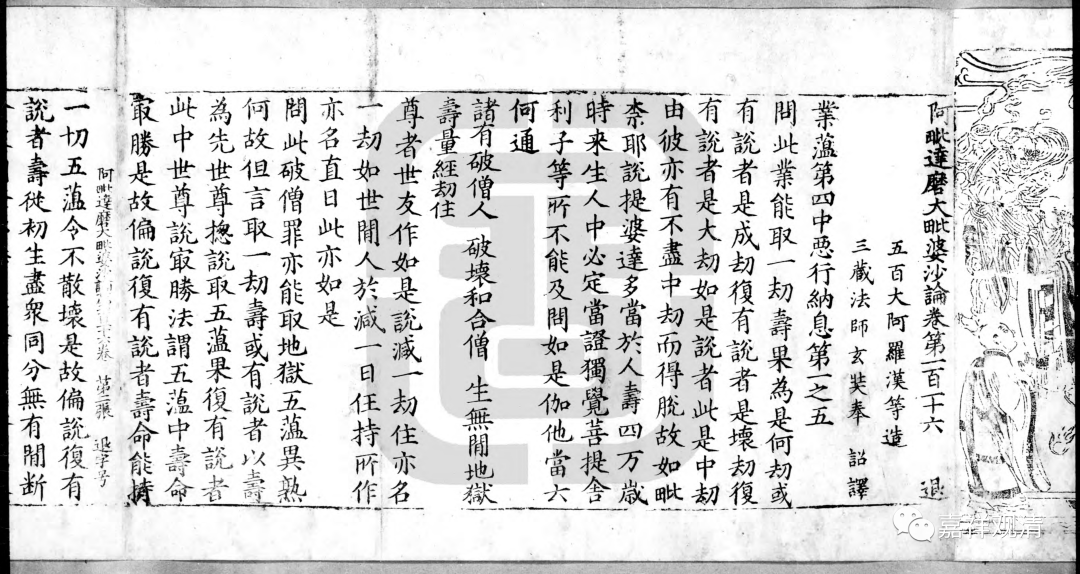 阿毗達磨大毗婆沙論卷第一百一十六　退
五百大阿羅漢等造
三藏法師玄奘奉　詔譯
業蘊第四中惡行納息第一之五
問此業能取一劫壽果為是何劫或
有說者是成劫復有說者是壞劫復
有說者是大劫如是說者此是中劫
由彼亦有不盡中劫而得脫故如毗
柰耶說提婆達多當於人壽四万歲
時来生人中必定當證獨覺菩提舍
利子等所不能及問如是伽他當云
何通
諸有破僧人　破壞和合僧　生無間地獄
壽量經劫住
尊者世友作如是說減一劫住亦名
一劫如世間人於減一日住持所作
亦名直日此亦如是
問此破僧罪亦能取地獄五蘊異熟
何故但言取一劫壽或有說者以壽
為先世尊揔說取五蘊果復有說者
此中世尊說最勝法謂五蘊中壽命
最勝是故偏說復有說者壽命能持
阿毗達磨大毗婆沙論　六卷　第二張　退字号
一切五蘊令不散壞是故偏說復有
說者壽從初生盡衆同分無有間斷
嘉祥观清